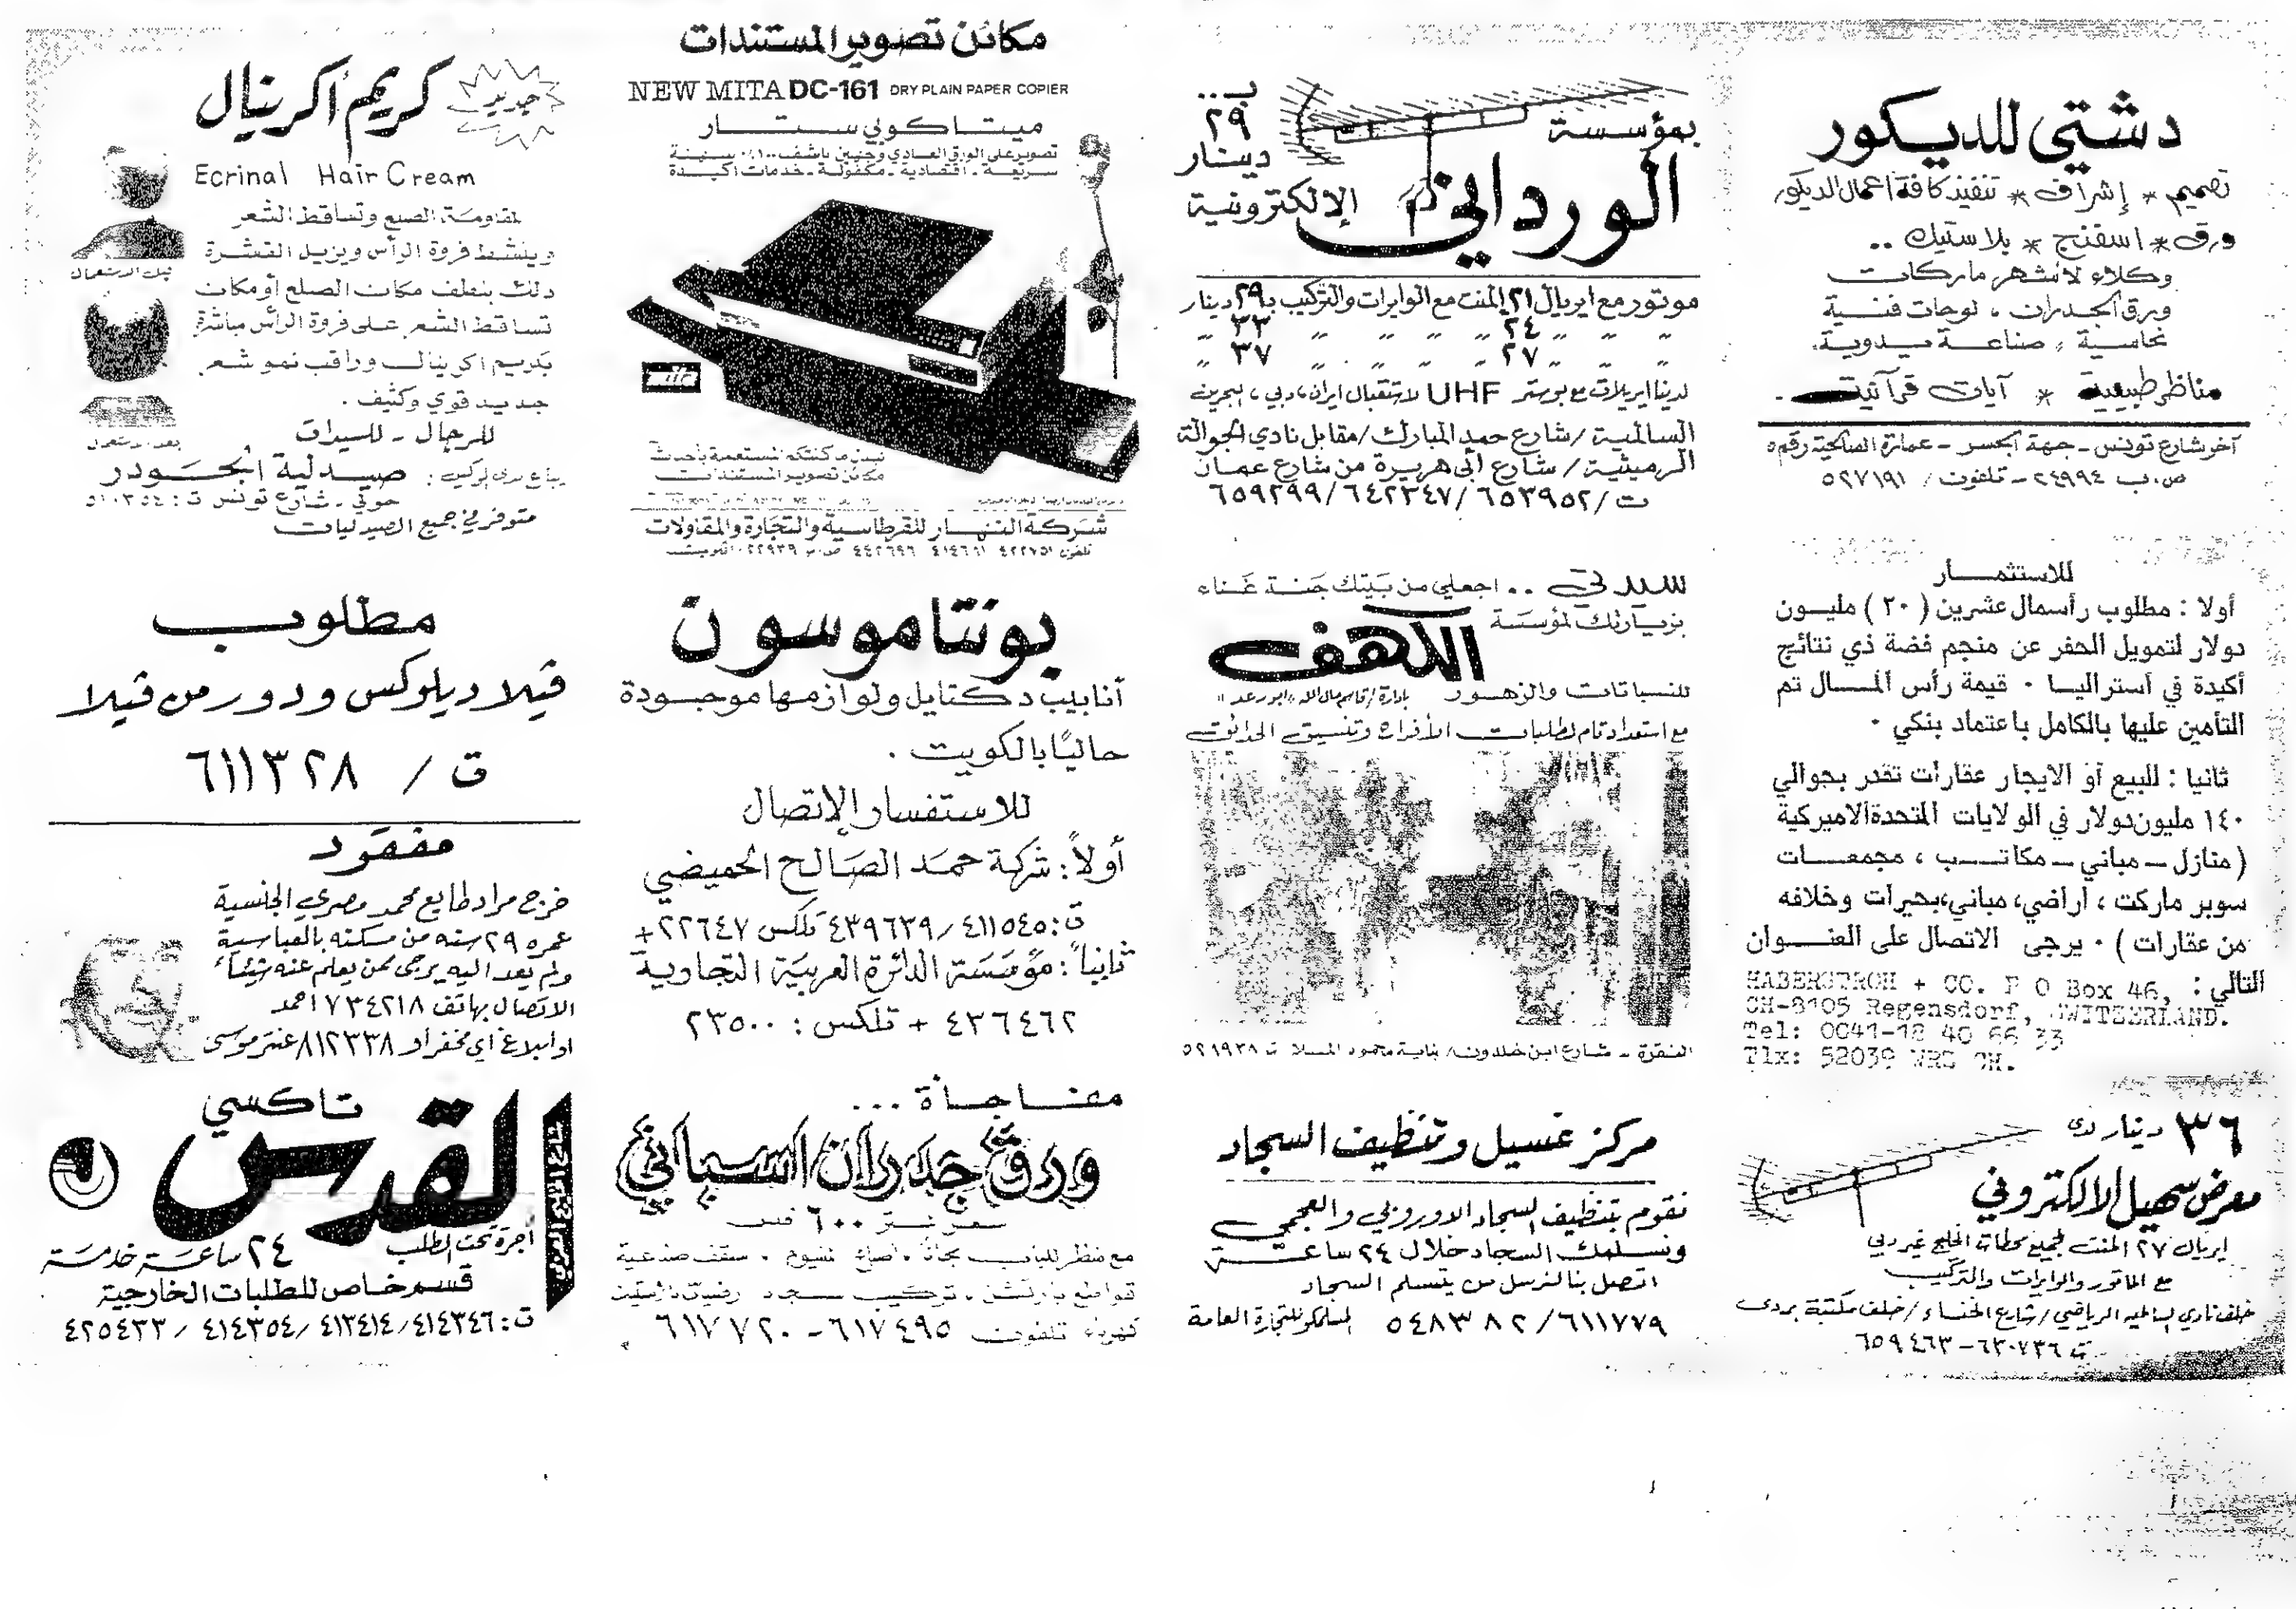 دشتي للديكور
تصميم * إشراف * تنفيذ كافة اعمال الديكور
ورق * اسفنج * بلاستيك ..
وكلاء لأشهر ماركات
ورق الجدران ، لوحات فنية
نحاسية ، صناعة يدوية.
مناظر طبيعية * آيات قرآنية
آخر شارع تونس - جهة الجسر - عمارة الصالحية رقم ٥
ص.ب ٢٤٩٩٤ - تلفون / ٥٢٧١٩١
للاستثمــار
أولا : مطلوب رأسمال عشرين ( ٢٠ ) مليــون
دولار لتمويل الحفر عن منجم فضة ذي نتائج
أكيدة في أستراليــا ٠ قيمة رأس المــال تم
التأمين عليها بالكامل باعتماد بنكي ٠
ثانيا : للبيع أو الايجار عقارات تقدر بحوالي
١٤٠ مليون دولار في الولايات المتحدة الاميركية
( منازل ــ مباني ــ مكاتــب ، مجمعــات
سوبر ماركت ، اراضي، مباني،بحيرات وخلافه
من عقارات ) ٠ يرجى الاتصال على العنــوان
التالي :
HABERSTROH + CO. P O Box 46,
CH-8105 Regensdorf, SWITZERLAND.
Tel: 0041-18 40 66 33
Tlx: 52039
٣٦ دينار لدى
معرض سهيل الالكتروني
ايريال ٢٧ المنت لجميع محطات الخليج غير دبي
مع الماتور والوايرات والتركيب
خلف نادي السالمية الرياضي / شارع الخنساء / خلف مكتبة بردى
ت ٦٣٠٧٣٦ - ٦٥٩٤٦٣
بـ..
٢٩
دينار
بمؤسسة
الورداني
الإلكترونية
موتور مع ايريال ٢١ المنت مع الوايرات والتركيب بـ ٢٩ دينار
〃 〃 〃 ٢٤ 〃 〃 〃 〃 ٣٣ 〃
〃 〃 〃 ٢٧ 〃 〃 〃 〃 ٣٧ 〃
لدينا ايريلات مع بوستر UHF لاستقبال ايران ، دبي ، البحرين
السالمية / شارع حمد المبارك / مقابل نادي الجوالة
الرميثية / شارع أبي هريرة من شارع عمان
ت / ٦٥٣٩٥٢ / ٦٤٢٣٤٧ / ٦٥٩٢٩٩
سيدتي .. اجعلي من بيتك جنة غناء
بزيارتك لمؤسسة
الكهف
للنباتات والزهور
بادارة / قاسم مال الله "ابو رعد"
مع استعداد تام لطلبات الأفراح وتنسيق الحدائق
النقرة - شارع ابن خلدون / بناية محمود الملا ت ٥٢١٩٣٨
مركز غسيل وتنظيف السجاد
نقوم بتنظيف السجاد الاوروبي والعجمي
ونسلمك السجاد خلال ٢٤ ساعة
اتصل بنا لنرسل من يتسلم السجاد
٦١١٧٧٩ / ٥٤٨٣٨٢
للتجارة العامة
مكائن تصوير المستندات
NEW MITA DC-161 DRY PLAIN PAPER COPIER
ميتا كوبي ستار
سريعة - اقتصادية - مكفولة - خدمات أكيدة
mita
نبدل ماكنتكم المستعملة بأحدث
مكائن تصوير المستندات
شركة النهار للقرطاسية والتجارة والمقاولات
بونتاموسون
أنابيب دكتايل ولوازمها موجودة
حاليًا بالكويت .
للاستفسار الإتصال
أولاً : شركة حمد الصالح الحميضي
ت : ٤١١٥٤٥ / ٤٣٩٦٣٩ تلكس ٢٢٦٤٧ +
ثانياً : مؤسسة الدائرة العربية التجارية
٤٣٦٤٦٢ + تلكس : ٢٣٥٠٠
مفــاجــأة ...
ورق جدران اسباني
سعر متر ٦٠٠ فلس
كهرباء تلفون ٦١٧٤٩٥ - ٦١٧٧٢٠
جديد
كريم أكرينال
Ecrinal Hair Cream
لمقاومة الصلع وتساقط الشعر
وينشط فروة الرأس ويزيل القشرة
تساقط الشعر على فروة الرأس مباشرة
بكريم اكرينال وراقب نمو شعر
جديد قوي وكثيف .
قبل الاستعمال
بعد الاستعمال
للرجال - للسيدات
صيدلية الجودر
حولي - شارع تونس ت : ٥١٠٣٥٤
متوفر في جميع الصيدليات
مطلوب
ڤيلا ديلوكس ودور من ڤيلا
ت / ٦١١٣٢٨
مفقود
خرج مراد طايع محمد مصري الجنسية
عمره ٢٩ سنه من مسكنه بالعباسية
ولم يعد اليه يرجى ممن يعلم عنه شيئاً
الاتصال بهاتف ٧٣٤٢١٨ احمد
او ابلاغ أي مخفر او ٨١٢٣٣٨ عنتر موسى
تاكسي
القدس
أجرة تحت الطلب
٢٤ ساعة خدمة
قسم خاص للطلبات الخارجية
ت : ٤١٤٣٤٦ / ٤١٣٤١٤ / ٤١٤٣٥٤ / ٤٢٥٤٣٣